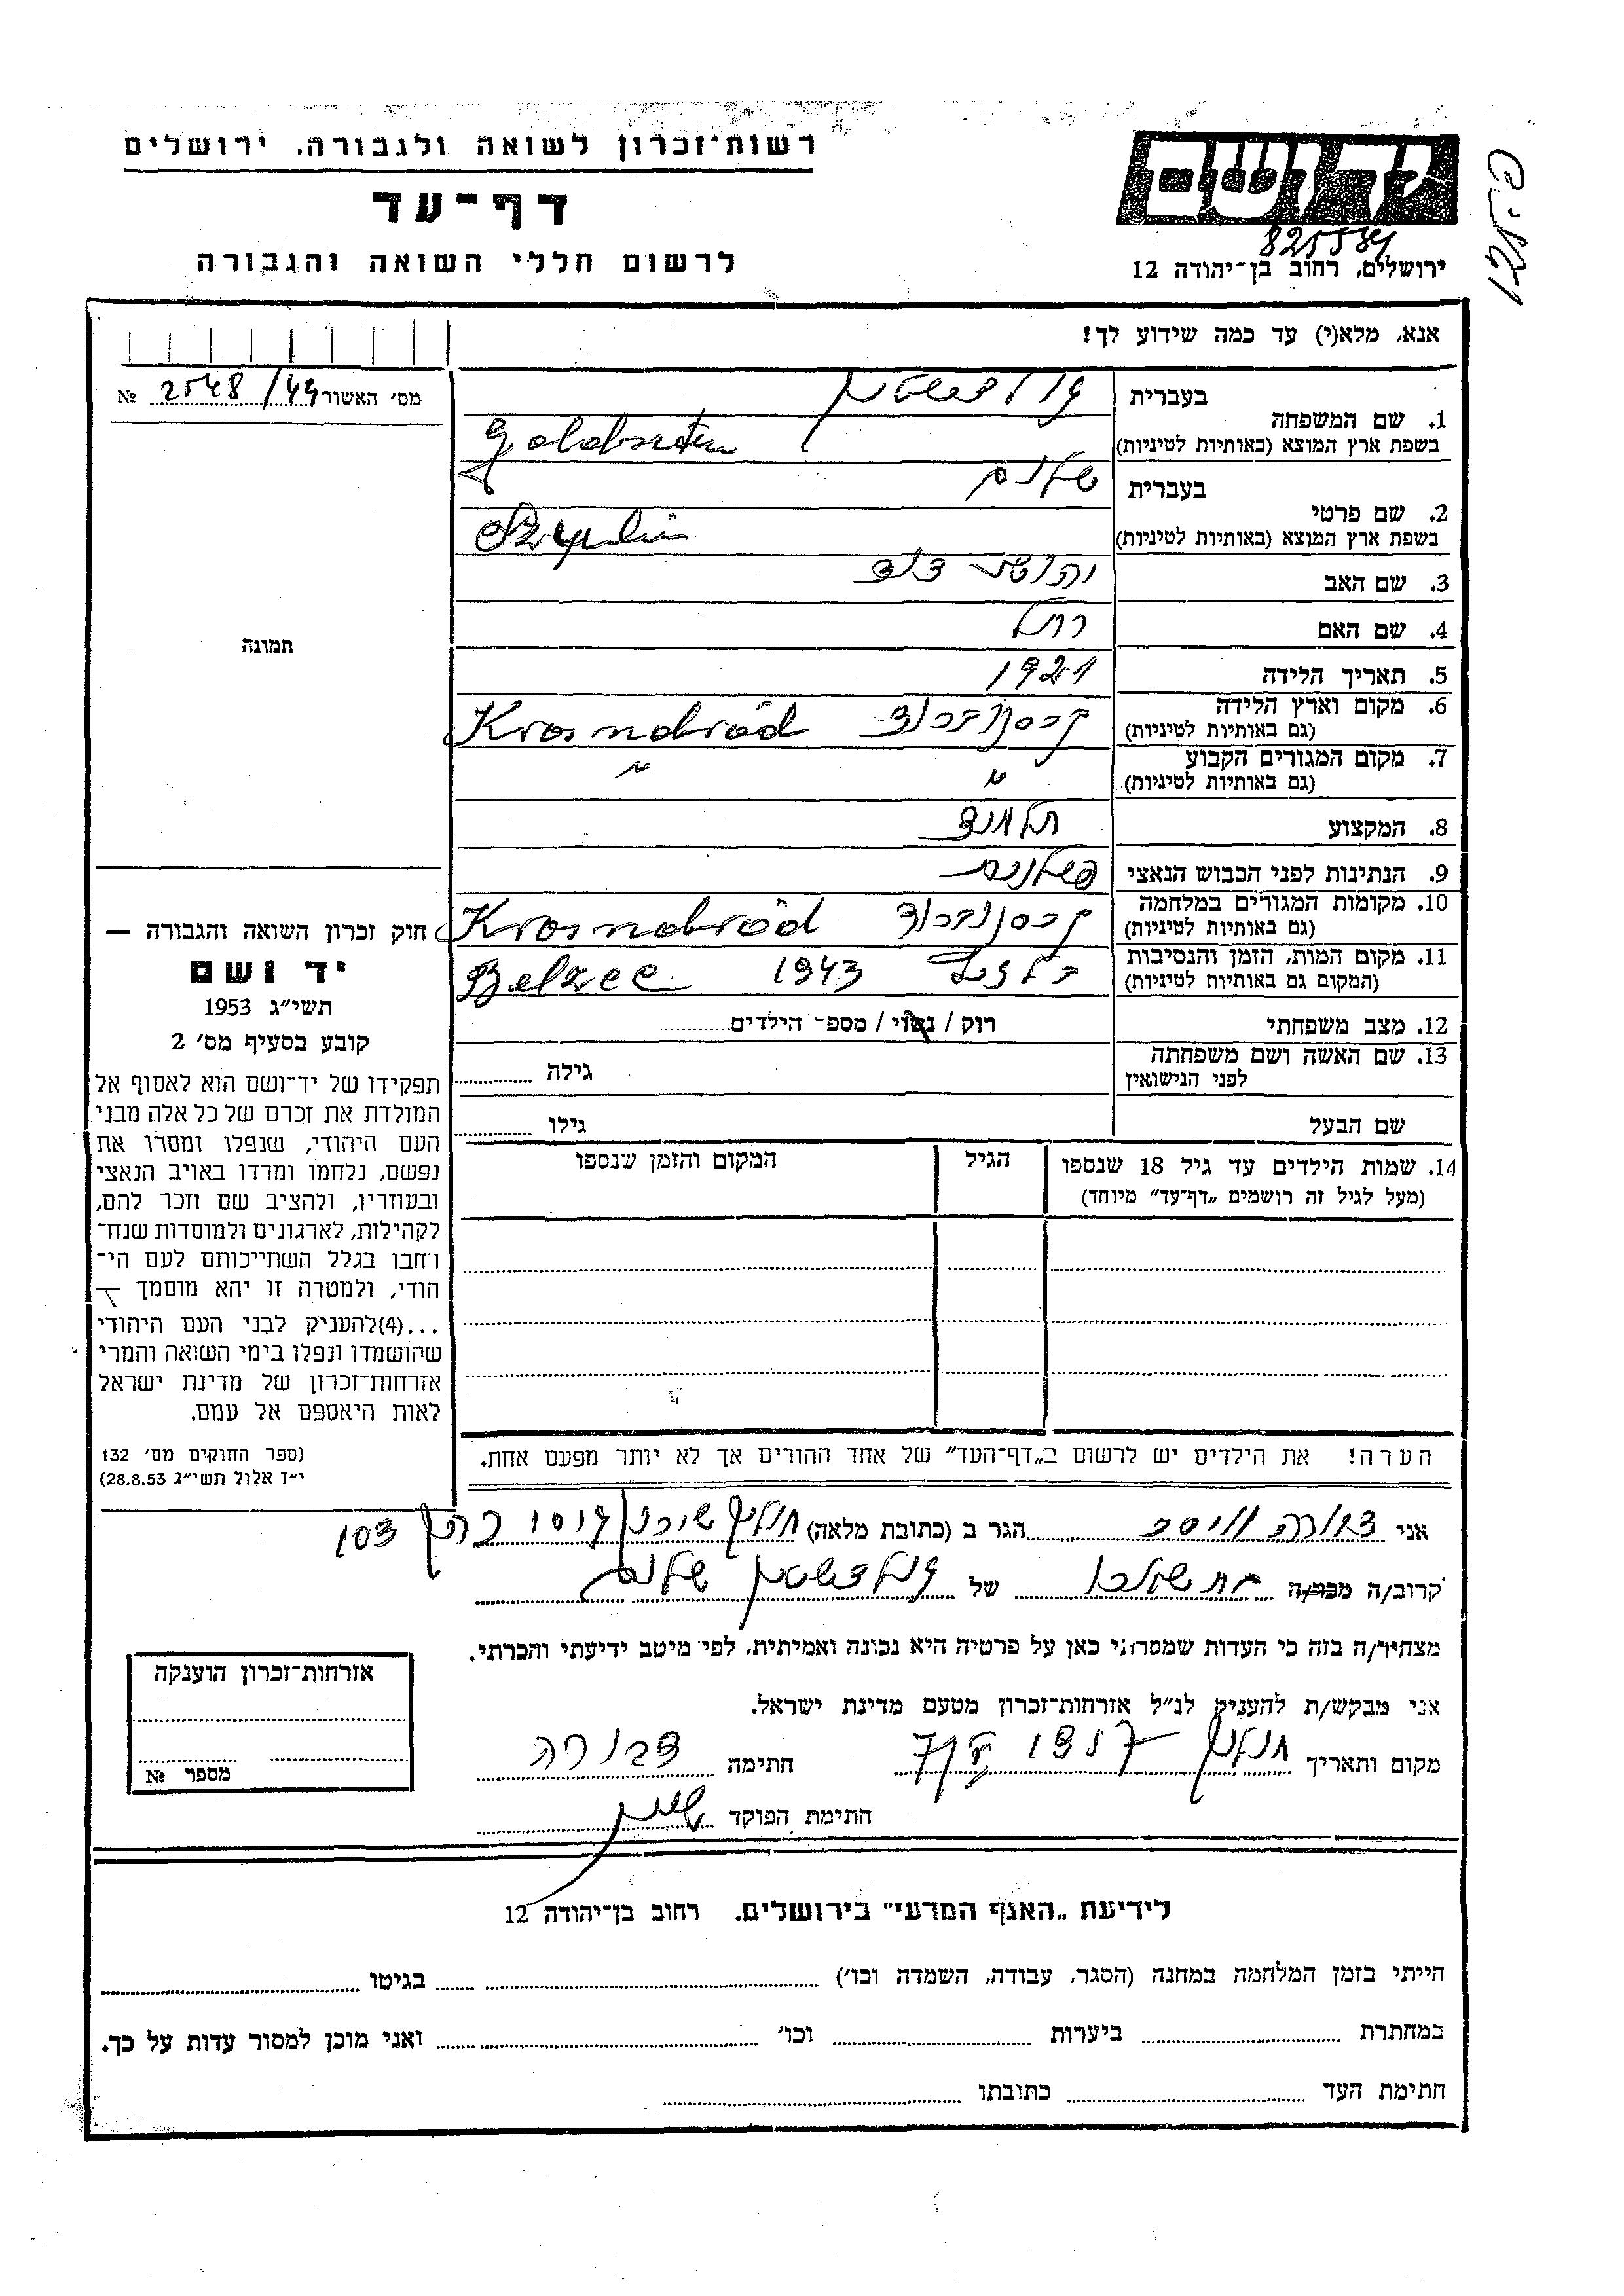 רשות־זכרון לשואה ולגבורה, ירושלים
דף־עד
לרשום חללי השואה והגבורה
יד ושם
825584
ירושלים, רחוב בן־יהודה 12
אנא, מלא(י) עד כמה שידוע לך!
מס׳ האשור 2548/44 №
תמונה
בעברית
1. שם המשפחה
בשפת ארץ המוצא (באותיות לטיניות)
גולדשטין
בעברית שלום
2. שם פרטי
בשפת ארץ המוצא (באותיות לטיניות)
3. שם האב יהושע דוד
4. שם האם רחל
5. תאריך הלידה 1921
6. מקום וארץ הלידה קרסנוברוד Krasnobród
(גם באותיות לטיניות)
7. מקום המגורים הקבוע " "
(גם באותיות לטיניות)
8. המקצוע תלמיד
9. הנתינות לפני הכבוש הנאצי פולנית
10. מקומות המגורים במלחמה קרסנוברוד Krasnobród
(גם באותיות לטיניות)
11. מקום המות, הזמן והנסיבות בלזץ 1943 Belzec
(המקום גם באותיות לטיניות)
12. מצב משפחתי רוק / נשוי / מספ־ הילדים
13. שם האשה ושם משפחתה גילה
לפני הנישואין
שם הבעל גילו
14. שמות הילדים עד גיל 18 שנספו הגיל המקום והזמן שנספו
(מעל לגיל זה רושמים „דף־עד” מיוחד)
הערה! את הילדים יש לרשום ב„דף־העד” של אחד ההורים אך לא יותר מפעם אחת.
חוק זכרון השואה והגבורה —
יד ושם
תשי״ג 1953
קובע בסעיף מס׳ 2
תפקידו של יד־ושם הוא לאסוף אל
המולדת את זכרם של כל אלה מבני
העם היהודי, שנפלו ומסרו את
נפשם, נלחמו ומרדו באויב הנאצי
ובעוזריו, ולהציב שם וזכר להם,
לקהילות, לארגונים ולמוסדות שנח־
רחבו בגלל השתייכותם לעם הי־
הודי, ולמטרה זו יהא מוסמך —
...(4)להעניק לבני העם היהודי
שהושמדו ונפלו בימי השואה והמרי
אזרחות־זכרון של מדינת ישראל
לאות היאספם אל עמם.
(ספר החוקים מס׳ 132
י״ז אלול תשי״ג 28.8.53)
אני דבורה הגר ב (כתובת מלאה) חולון שיכון 103
קרוב/ה מכר/ה של גולדשטין שלום
מצהיר/ה בזה כי העדות שמסרתי כאן על פרטיה היא נכונה ואמיתית, לפי מיטב ידיעתי והכרתי.
אני מבקש/ת להעניק לנ״ל אזרחות־זכרון מטעם מדינת ישראל.
מקום ותאריך חולון חתימה דבורה
חתימת הפוקד
אזרחות־זכרון הוענקה
מספר №
לידיעת „האגף המדעי” בירושלים. רחוב בן־יהודה 12
הייתי בזמן המלחמה במחנה (הסגר, עבודה, השמדה וכו׳) בגיטו
במחתרת ביערות וכו׳ ואני מוכן למסור עדות על כך.
חתימת העד כתובתו